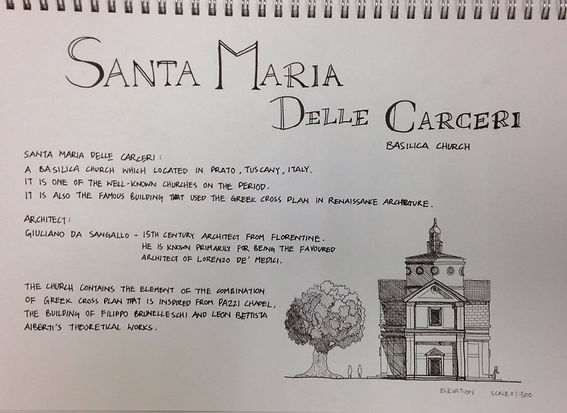 SANTA MARIA
DELLE CARCERI
BASILICA CHURCH
SANTA MARIA DELLE CARCERI :
A BASILICA CHURCH WHICH LOCATED IN PRATO, TUSCANY, ITALY.
IT IS ONE OF THE WELL-KNOWN CHURCHES ON THE PERIOD.
IT IS ALSO THE FAMOUS BUILDING THAT USED THE GREEK CROSS PLAN IN RENAISSANCE ARCHITECTURE.
ARCHITECT :
GIULIANO DA SANGALLO - 15TH CENTURY ARCHITECT FROM FLORENTINE.
HE IS KNOWN PRIMARILY FOR BEING THE FAVOURED
ARCHITECT OF LORENZO DE' MEDICI.
THE CHURCH CONTAINS THE ELEMENT OF THE COMBINATION
OF GREEK CROSS PLAN THAT IS INSPIRED FROM PAZZI CHAPEL,
THE BUILDING OF FILIPPO BRUNELLESCHI AND LEON BETTISTA
ALBERTI'S THEORETICAL WORKS.
ELEVATION SCALE = 1:500